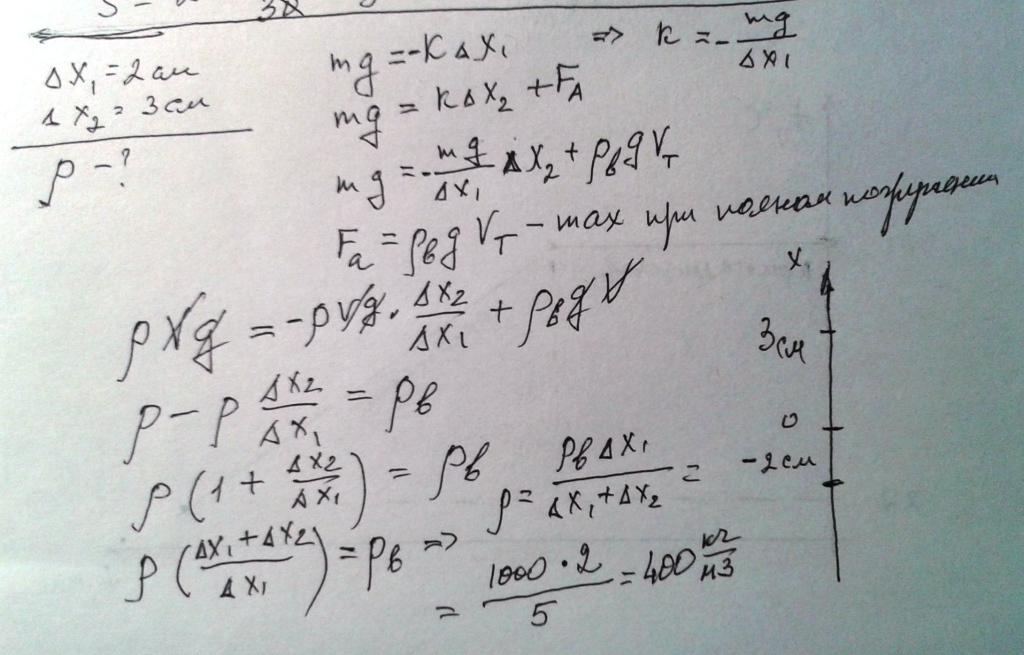 Δx₁ = 2 см
Δx₂ = 3 см
ρ - ?
mg = -kΔx₁ => k = -mg/Δx₁
mg = kΔx₂ + F_A
mg = -mg/Δx₁ Δx₂ + ρ_в g V_T
F_a = ρ_в g V_T - max при полном погружении
ρVg = -ρVg · Δx₂/Δx₁ + ρ_в g V
ρ - ρ Δx₂/Δx₁ = ρ_в
ρ(1 + Δx₂/Δx₁) = ρ_в
ρ((Δx₁ + Δx₂)/Δx₁) = ρ_в =>
ρ = ρ_в Δx₁/(Δx₁ + Δx₂) =
= 1000 · 2/5 = 400 кг/м3
x
3 см
0
-2 см